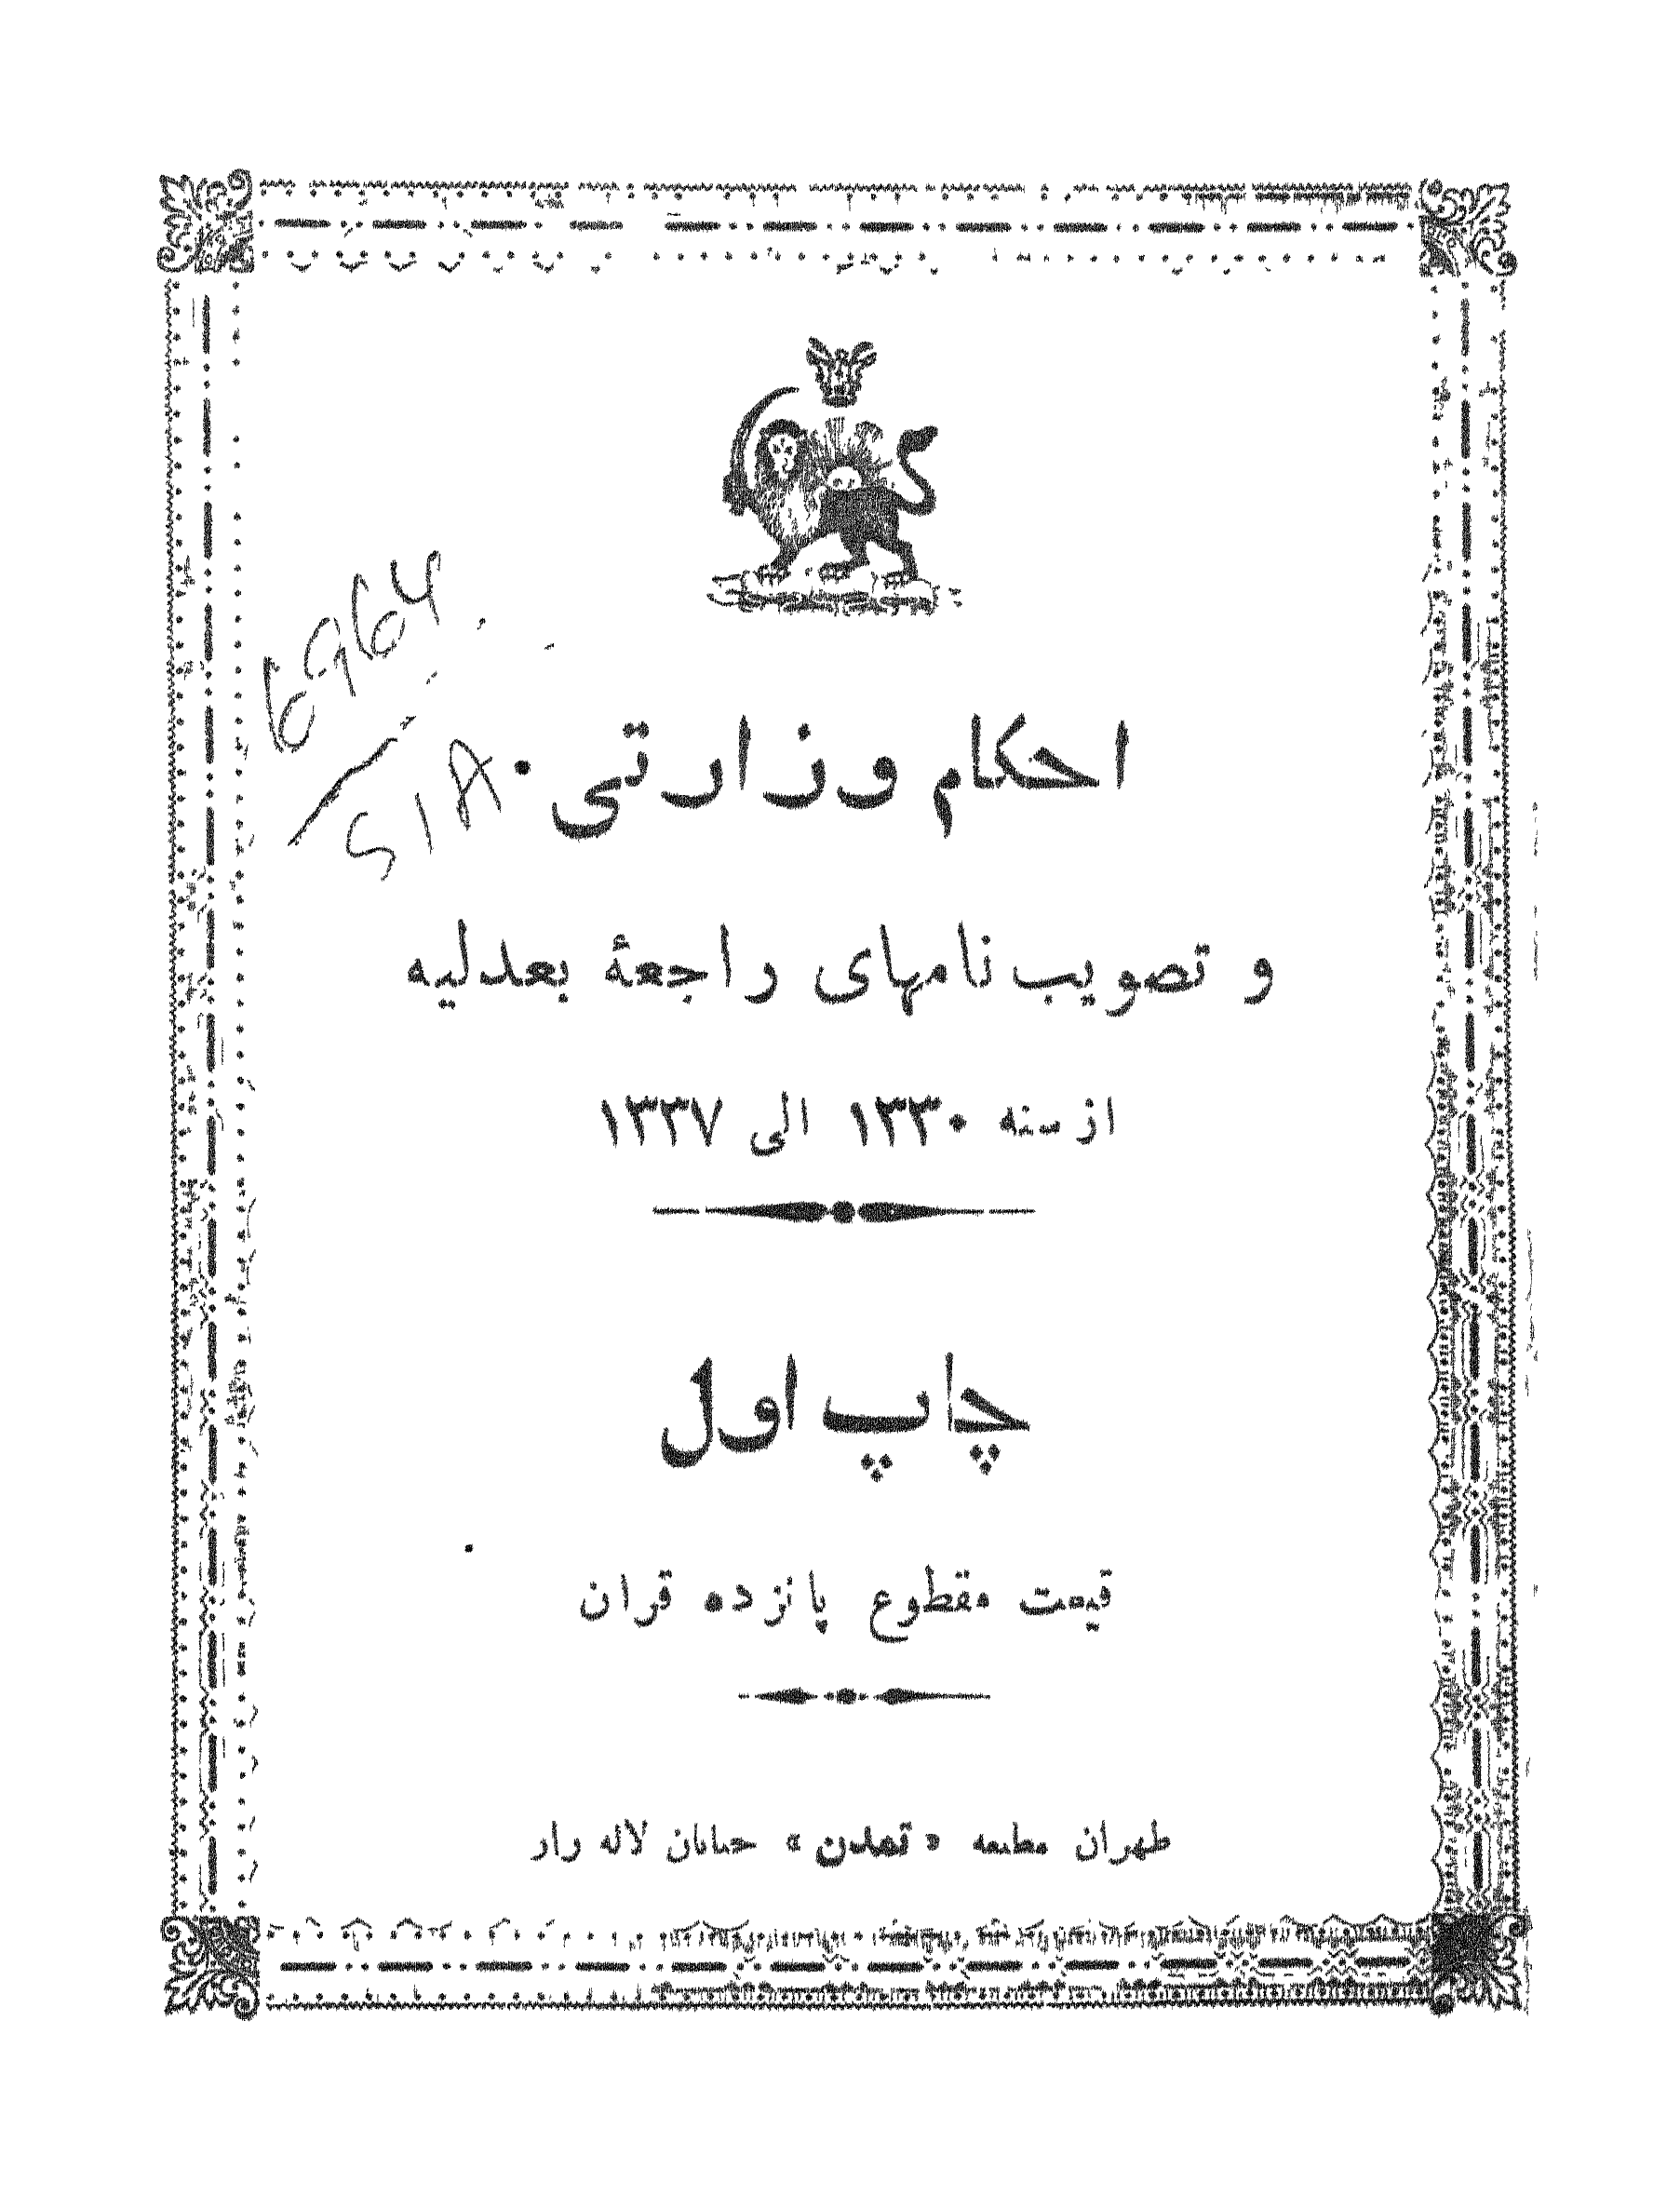 احکام وزارتی
و تصویب نامهای راجعهٔ بعدلیه
از سنه ۱۳۳۰ الی ۱۳۳۷
چاپ اول
قیمت مقطوع پانزده قران
طهران مطبعه « تمدن » خیابان لاله زار